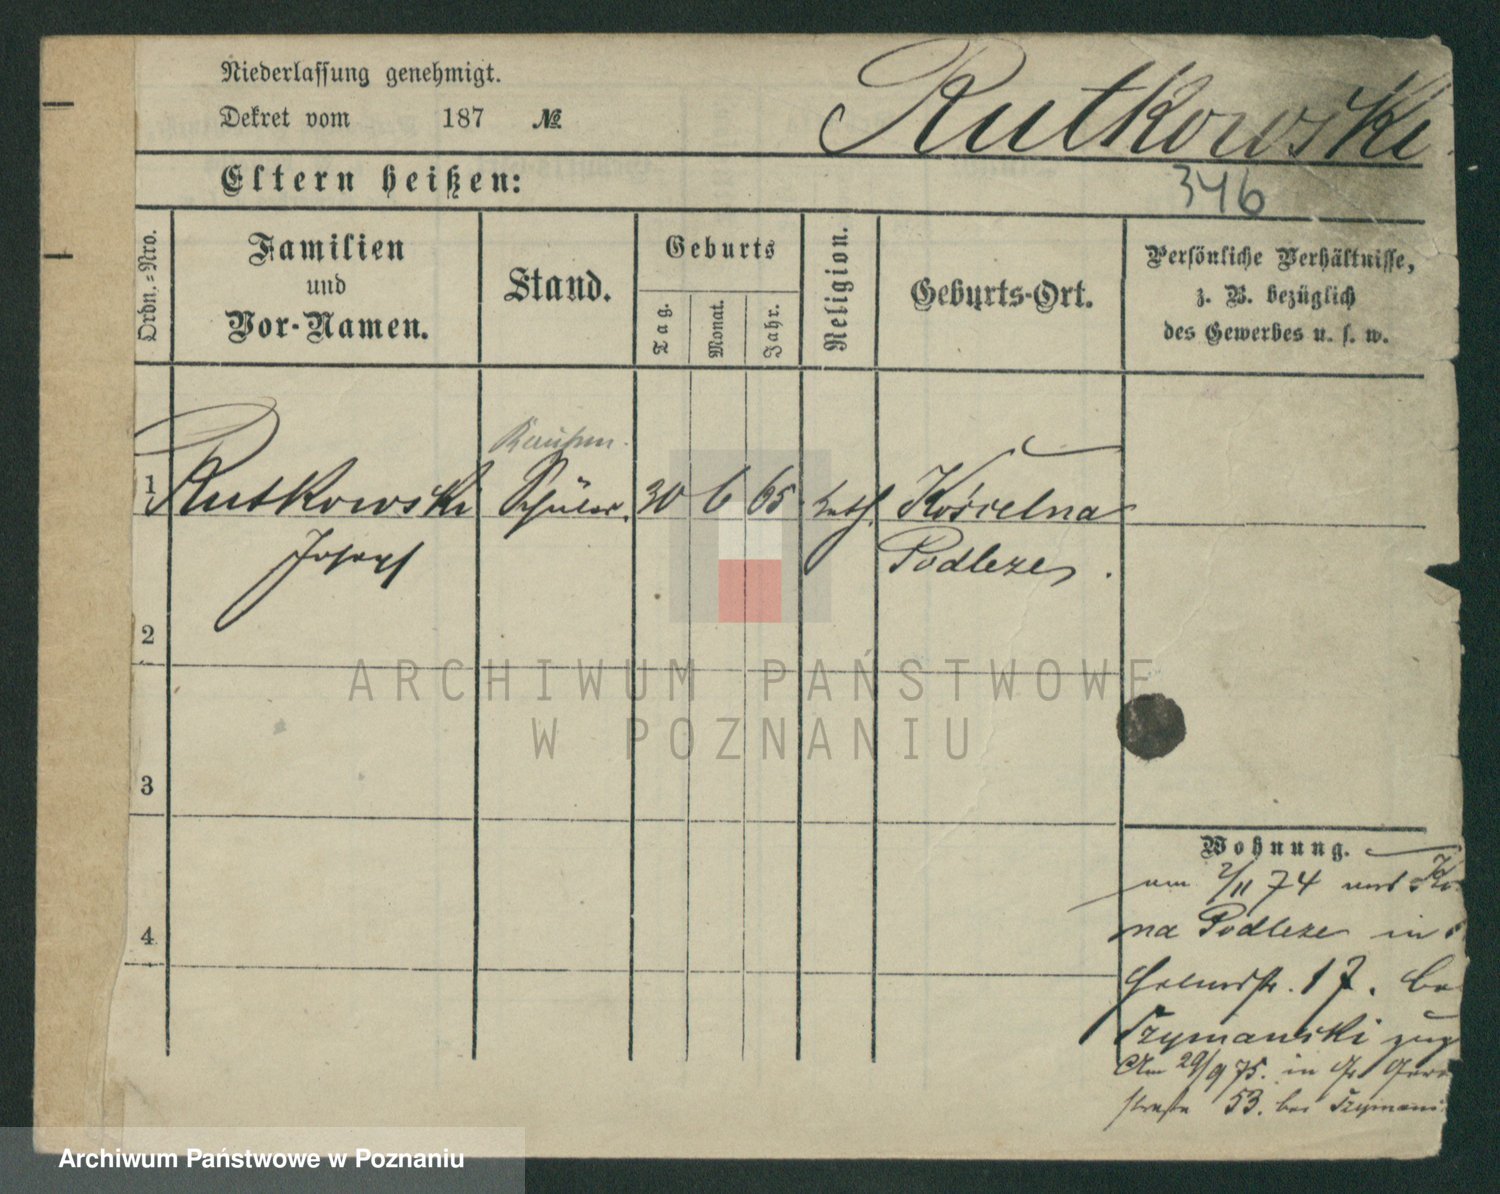 Niederlassung genehmigt.
Dekret vom 187 №
Rutkowski
346
Eltern heißen:
Ordn.-Nro.
Familien
und
Vor-Namen.
Stand.
Geburts
Tag.
Monat.
Jahr.
Religion.
Geburts-Ort.
Persönliche Verhältnisse,
z. B. bezüglich
des Gewerbes u. s. w.
1 Rutkowski Schüler. 30 6 65 kath. Kościelna
Josef Podleze.
2
3
4
Wohnung.
am 2/11 74 von
na Podleze in
17.
Szymanski zug
Am 29/9 75. in Gr. Ger
straße 53. bei Szymans
ARCHIWUM PAŃSTWOWE
W POZNANIU
Archiwum Państwowe w Poznaniu